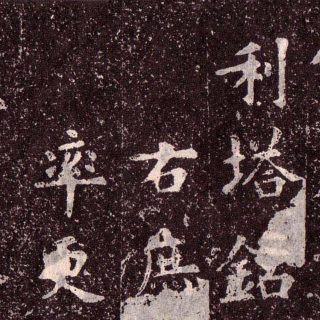 利塔銘
右庶
率更